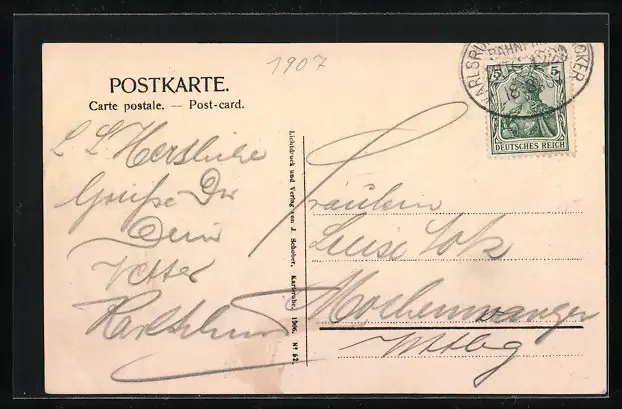 1907
POSTKARTE.
Carte postale. — Post-card.
Herzliche
Grüße Dir
Dein
Vetter
Lichtdruck und Verlag von J. Schober, Karlsruhe, 1906. Nº 62.
KARLSRUHE
BAHNPOST
5 5
DEUTSCHES REICH
Fräulein
Luise
Mochenwangen
Wttbg